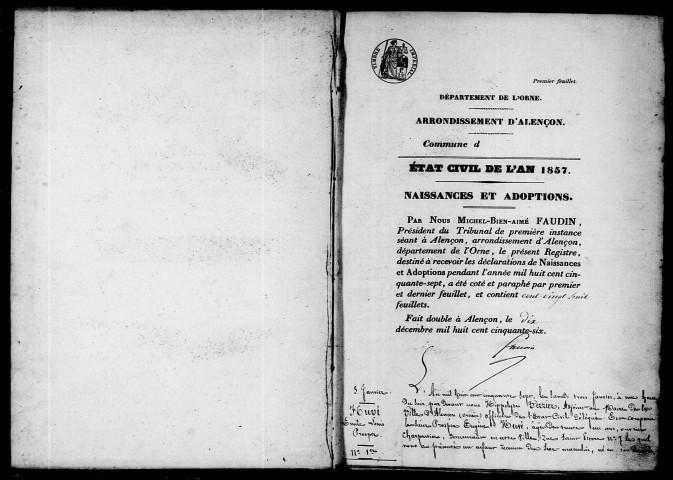 TIMBRE IMPÉRIAL
Premier feuillet.
DÉPARTEMENT DE L'ORNE.
ARRONDISSEMENT D'ALENÇON.
Commune d
ÉTAT CIVIL DE L'AN 1857.
NAISSANCES ET ADOPTIONS.
PAR NOUS MICHEL-BIEN-AIMÉ FAUDIN,
Président du Tribunal de première instance
séant à Alençon, arrondissement d'Alençon,
département de l'Orne, le présent Registre,
destiné à recevoir les déclarations de Naissances
et Adoptions pendant l'année mil huit cent cin-
quante-sept, a été coté et paraphé par premier
et dernier feuillet, et contient cent vingt huit
feuillets.
Fait double à Alençon, le dix
décembre mil huit cent cinquante-six.
Faudin
3 Janvier
Huvé
Emile Louis
Prosper
N° 1er
L'An mil huit cent cinquante sept, le lundi trois Janvier, à une heure
du soir par devant nous Hippolyte Adjoint au Maire de la
Ville d'Alençon (orne) officier de l'Etat-Civil délégué Est comparu
Prosper Eugène Huvé, âgé de un ans, ouvrier
charpentier, demeurant en cette Ville rue Saint n° 7 le quel
nous a présenté un enfant du Sexe masculin, né en